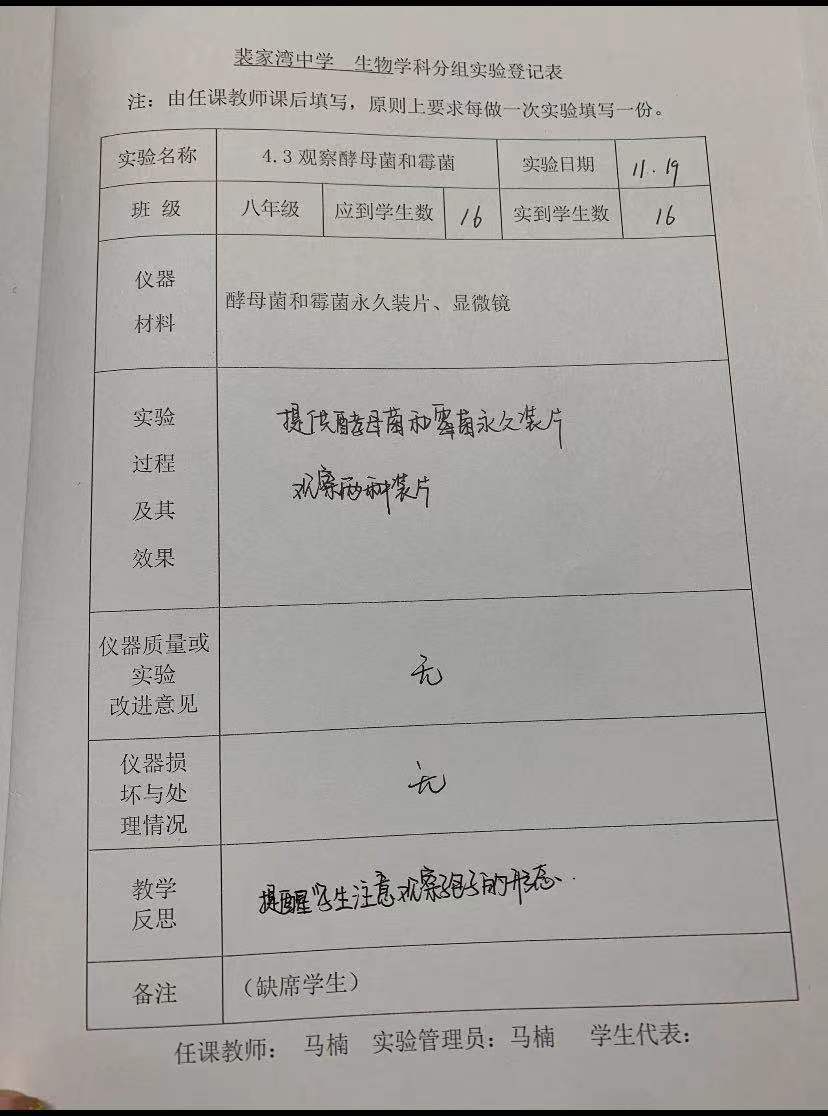 裴家湾中学 生物学科分组实验登记表
注：由任课教师课后填写，原则上要求每做一次实验填写一份。
实验名称 4.3观察酵母菌和霉菌 实验日期 11.19
班 级 八年级 应到学生数 16 实到学生数 16
仪器
材料
酵母菌和霉菌永久装片、显微镜
实验
过程
及其
效果
提供酵母菌和霉菌永久装片
观察两种装片
仪器质量或
实验
改进意见
无
仪器损
坏与处
理情况
无
教学
反思
提醒学生注意观察孢子的形态.
备注 （缺席学生）
任课教师： 马楠 实验管理员：马楠 学生代表：